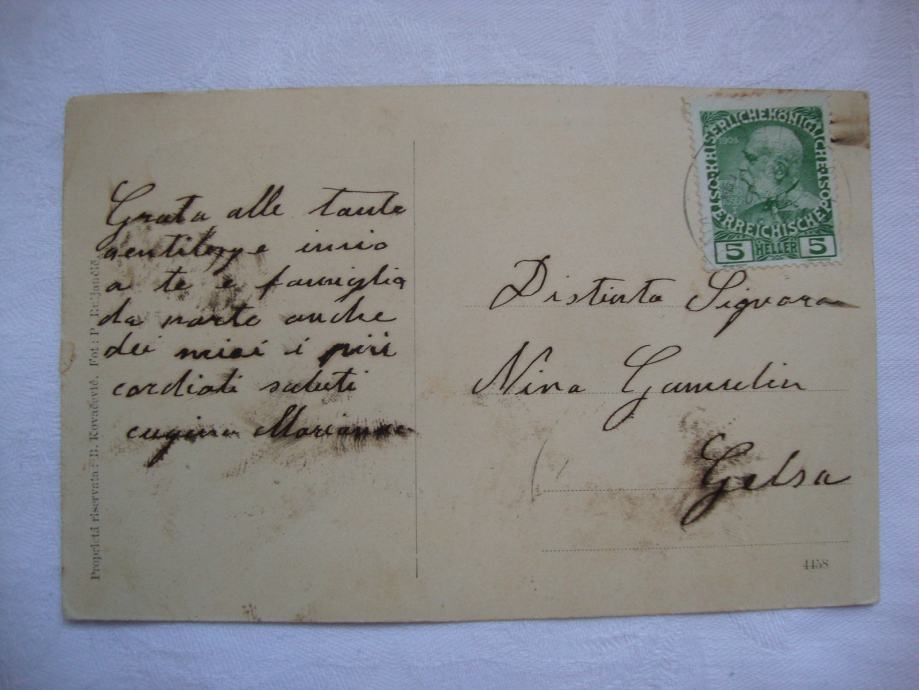 Grata alle tante
gentilezze invio
a te e famiglia
da parte anche
dei miei i più
cordiali saluti
cugina Marianna
Proprietà riservata: B. Kovačević. Fot: P.
KAISERLICHE KÖNIGLICHE ÖSTERREICHISCHE POST
1908
5 HELLER 5
Distinta Signora
Nina Gamulin
Gelsa
4458